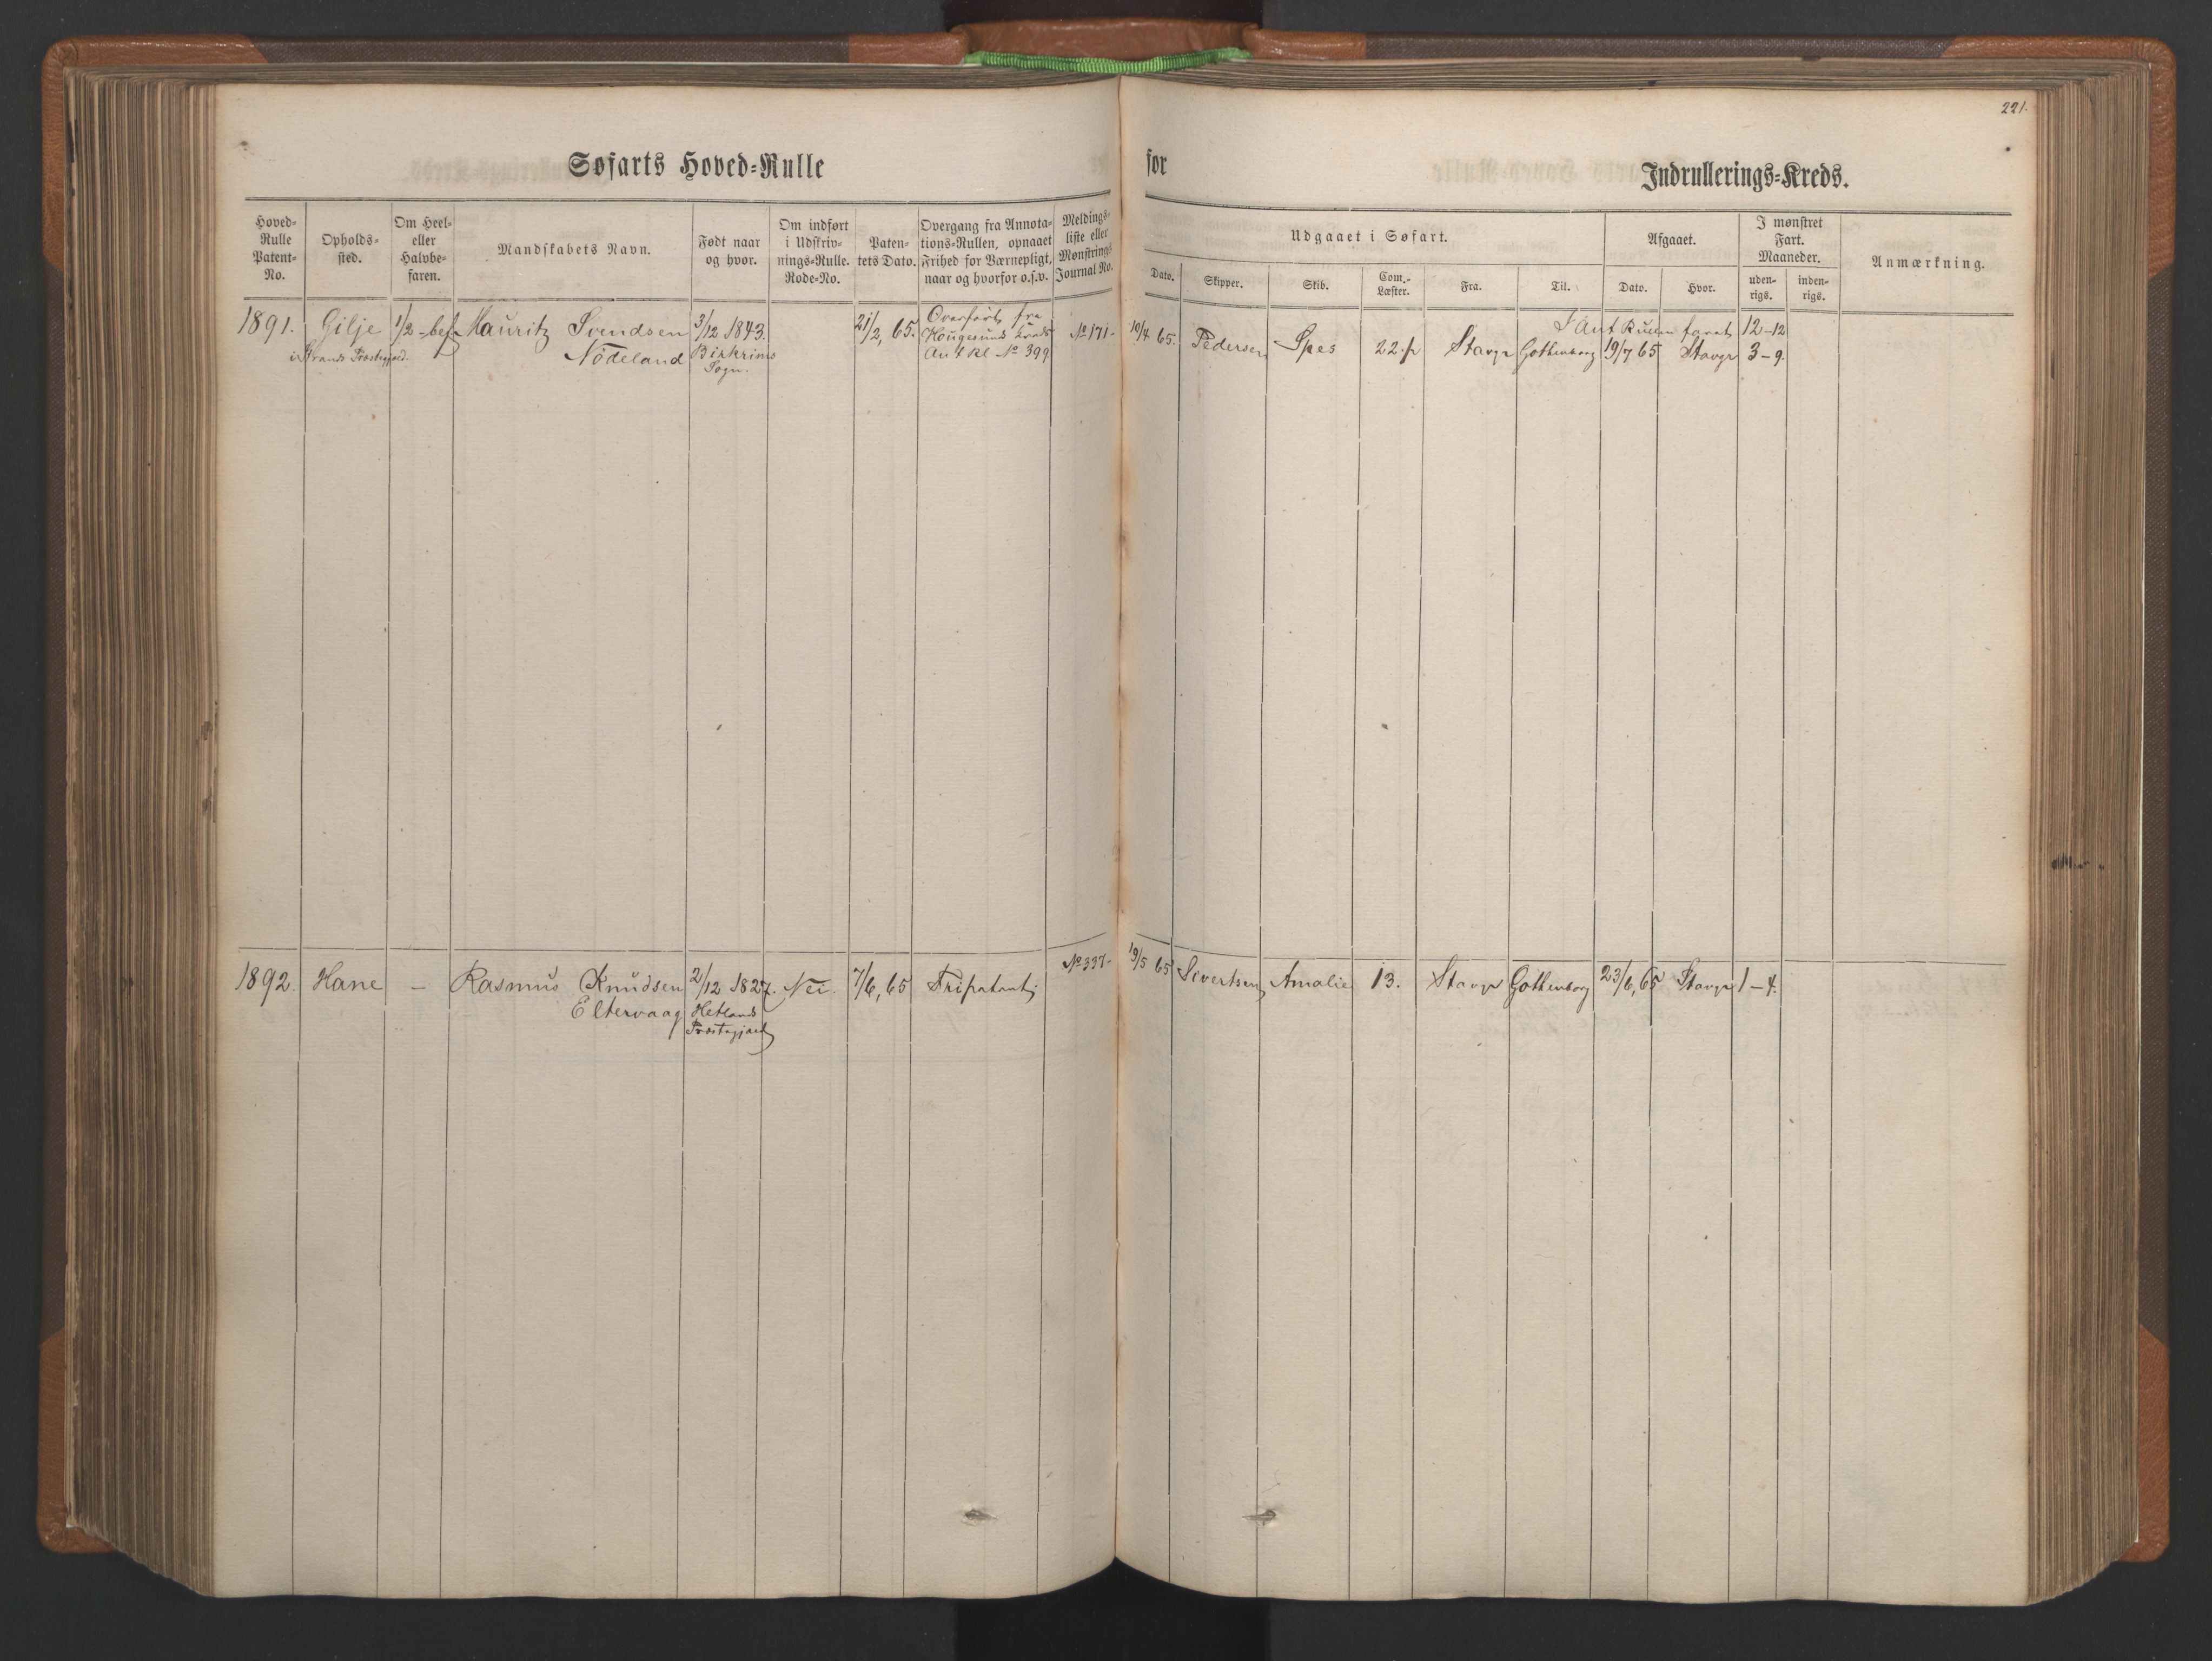 221.
Søfarts Hoved-Rulle
for
Indrullerings-Kreds.
Hoved-Rulle Patent-No.
Opholds-sted.
Om Heel- eller Halvbe-faren.
Mandskabets Navn.
Født naar og hvor.
Om indført i Udskriv-nings-Rulle. Rode-No.
Paten-tets Dato.
Overgang fra Annota-tions-Rullen, opnaaet Frihed for Værnepligt, naar og hvorfor o.s.v.
Meldings-liste eller Mønstrings Journal No.
Udgaaet i Søfart.
Dato.
Skipper.
Skib.
Com.-Læster.
Fra.
Til.
Afgaaet.
Dato.
Hvor.
I mønstret Fart. Maaneder.
uden-rigs.
inden-rigs.
Anmærkning.
1891. Gilje 1/2-bef Mauritz Svendsen 3/12 1843. 21/2, 65. Overført fra
i Strands Præstegjæld. Nödeland Birkrims Sogn. Hougesunds Kreds
Ant Rl № 399
№ 171-
I Ant Rullen faret 12-12
10/4 65. Pedersen Spes 22.p Stavgr Gothenborg 19/7 65 Stavgr 3-9.
1892. Hane - Rasmus Knudsen 2/12 1827. Nei. 7/6, 65 Fripatent № 337-
Eltervaag Hetlands
Præstegjæld
19/5 65 Sivertsen Amalie 13. Stavgr Gothenborg 23/6, 65 Stavgr 1-4.